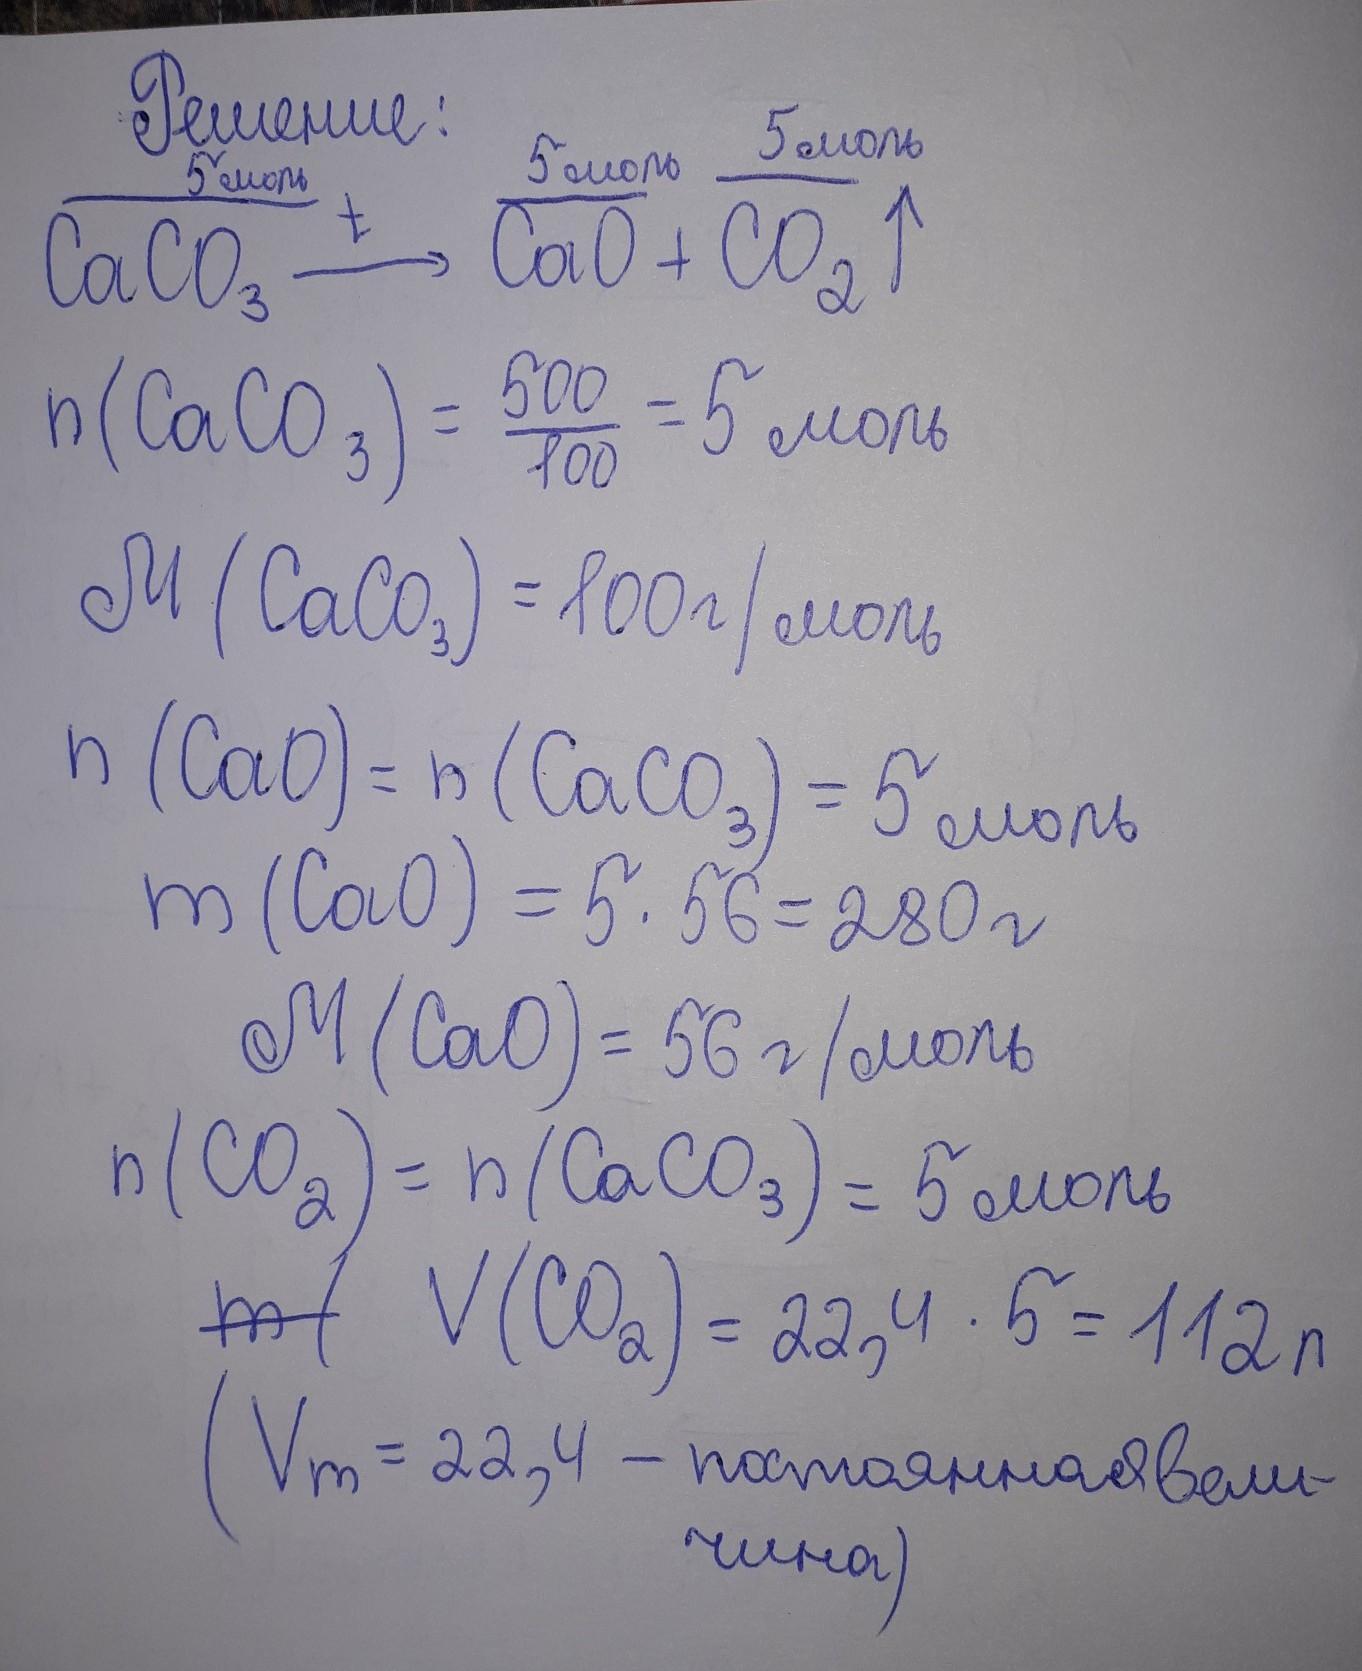 Решение:
5 моль 5 моль 5 моль
CaCO₃ —t→ CaO + CO₂↑
n(CaCO₃) = 500/100 = 5 моль
M(CaCO₃) = 100 г/моль
n(CaO) = n(CaCO₃) = 5 моль
m(CaO) = 5 · 56 = 280 г
M(CaO) = 56 г/моль
n(CO₂) = n(CaCO₃) = 5 моль
m( V(CO₂) = 22,4 · 5 = 112 л
(Vm = 22,4 – постоянная вели-
чина)